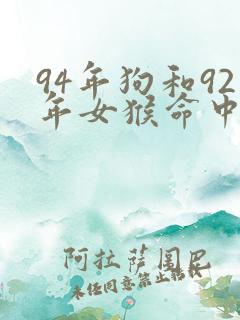 94年狗和92
年女猴命中
阿拉萨闺臣
未经同意禁止转载